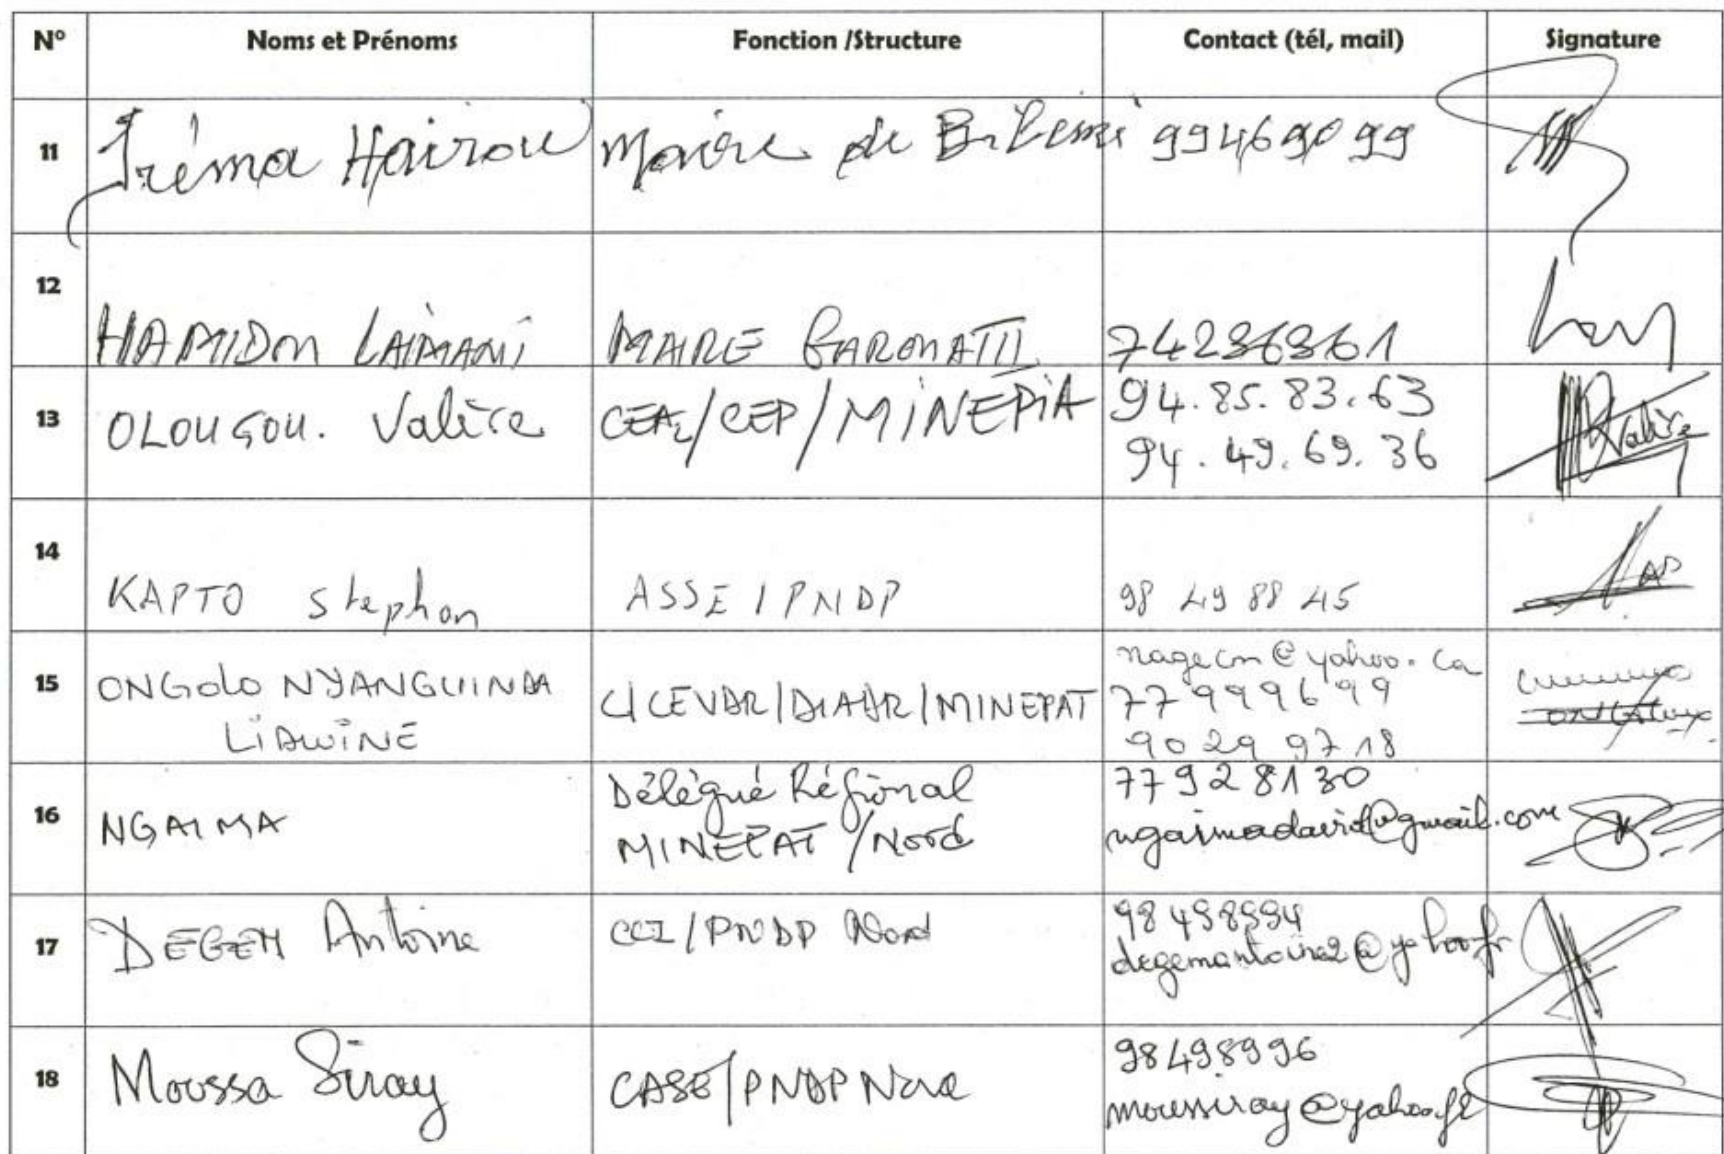 N° Noms et Prénoms Fonction /Structure Contact (tél, mail) Signature
11 Iréma Hairou Maire de Bibemi 99469099
12 HAMIDOU LAIMANI MAIRE GAROUA III 74236361
13 OLOUGOU. Valère CEA2/CEP/MINEPIA 94.85.83.63
94.49.69.36
Valère
14 KAPTO stephan ASSE/PNDP 98 49 88 45
15 ONGOLO NYANGUINDA
LIDWINE
C/CEVDR/DIADR/MINEPAT
nagecn@yahoo.ca
77 99 96 99
90 29 97 18
16 NGAIMA
Délégué Régional
MINEPAT/Nord
77928130
ngaimadavid@gmail.com
17 DEGEM Antoine CCI/PNDP Nord
98498994
degemantoine2@yahoo.fr
18 Moussa Siray CASE/PNDP Nord
98498996
moussiray@yahoo.fr